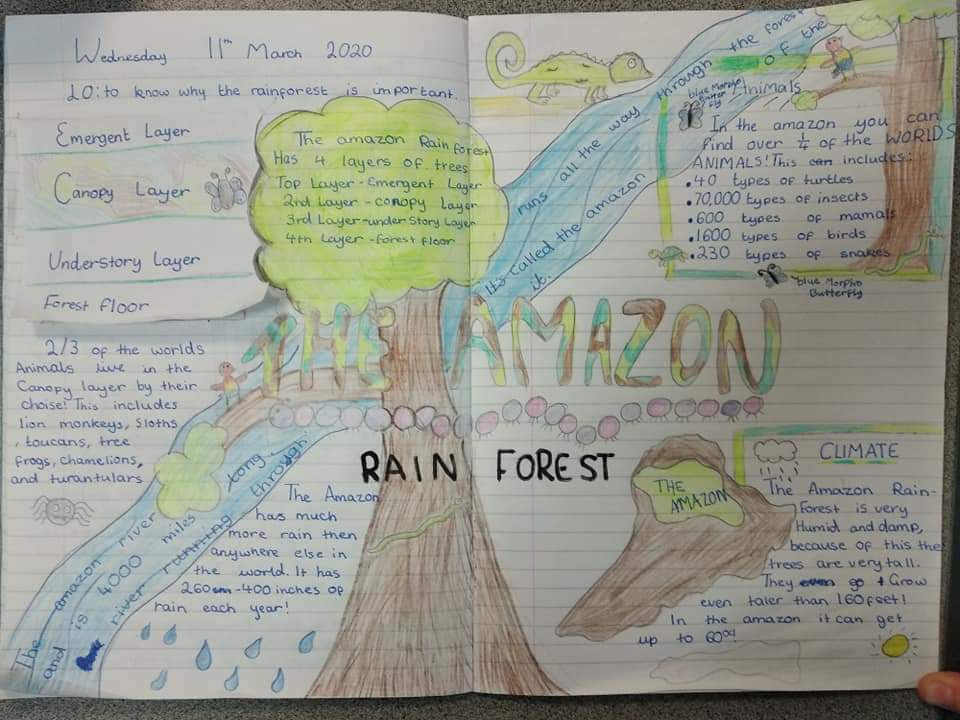 Wednesday 11th March 2020
LO: to know why the rainforest is important.
Emergent Layer
Canopy Layer
Understory Layer
Forest floor
The amazon Rain forest
Has 4 layers of trees
Top Layer - Emergent Layer
2nd Layer - conopy Layer
3rd Layer - under Story Layer
4th Layer - forest floor
2/3 of the worlds
Animals live in the
Canopy layer by their
choise! This includes
lion monkeys, Sloths
, toucans, tree
frogs, chamelions,
and turantulars
THE AMAZON
RAIN FOREST
The amazon river
and is 4000 miles long.
river running through
runs all the way through the forest
It's called the amazon
of the
it.
The Amazon
has much
more rain then
anywhere else in
the world. It has
260 - 400 inches of
rain each year!
blue Morpho
Butter
fly
Animals
In the amazon you can
find over 1/4 of the WORLDS
ANIMALS! This can includes:
• 40 types of turtles
• 70,000 types of insects
• 600 types of mamals
• 1600 types of birds
• 230 types of snakes
blue Morpho
Butterfly
THE
AMAZON
CLIMATE
The Amazon Rain-
Forest is very
Humid and damp,
because of this the
trees are very tall.
They even go + Grow
even taler than 160 feet!
In the amazon it can get
up to